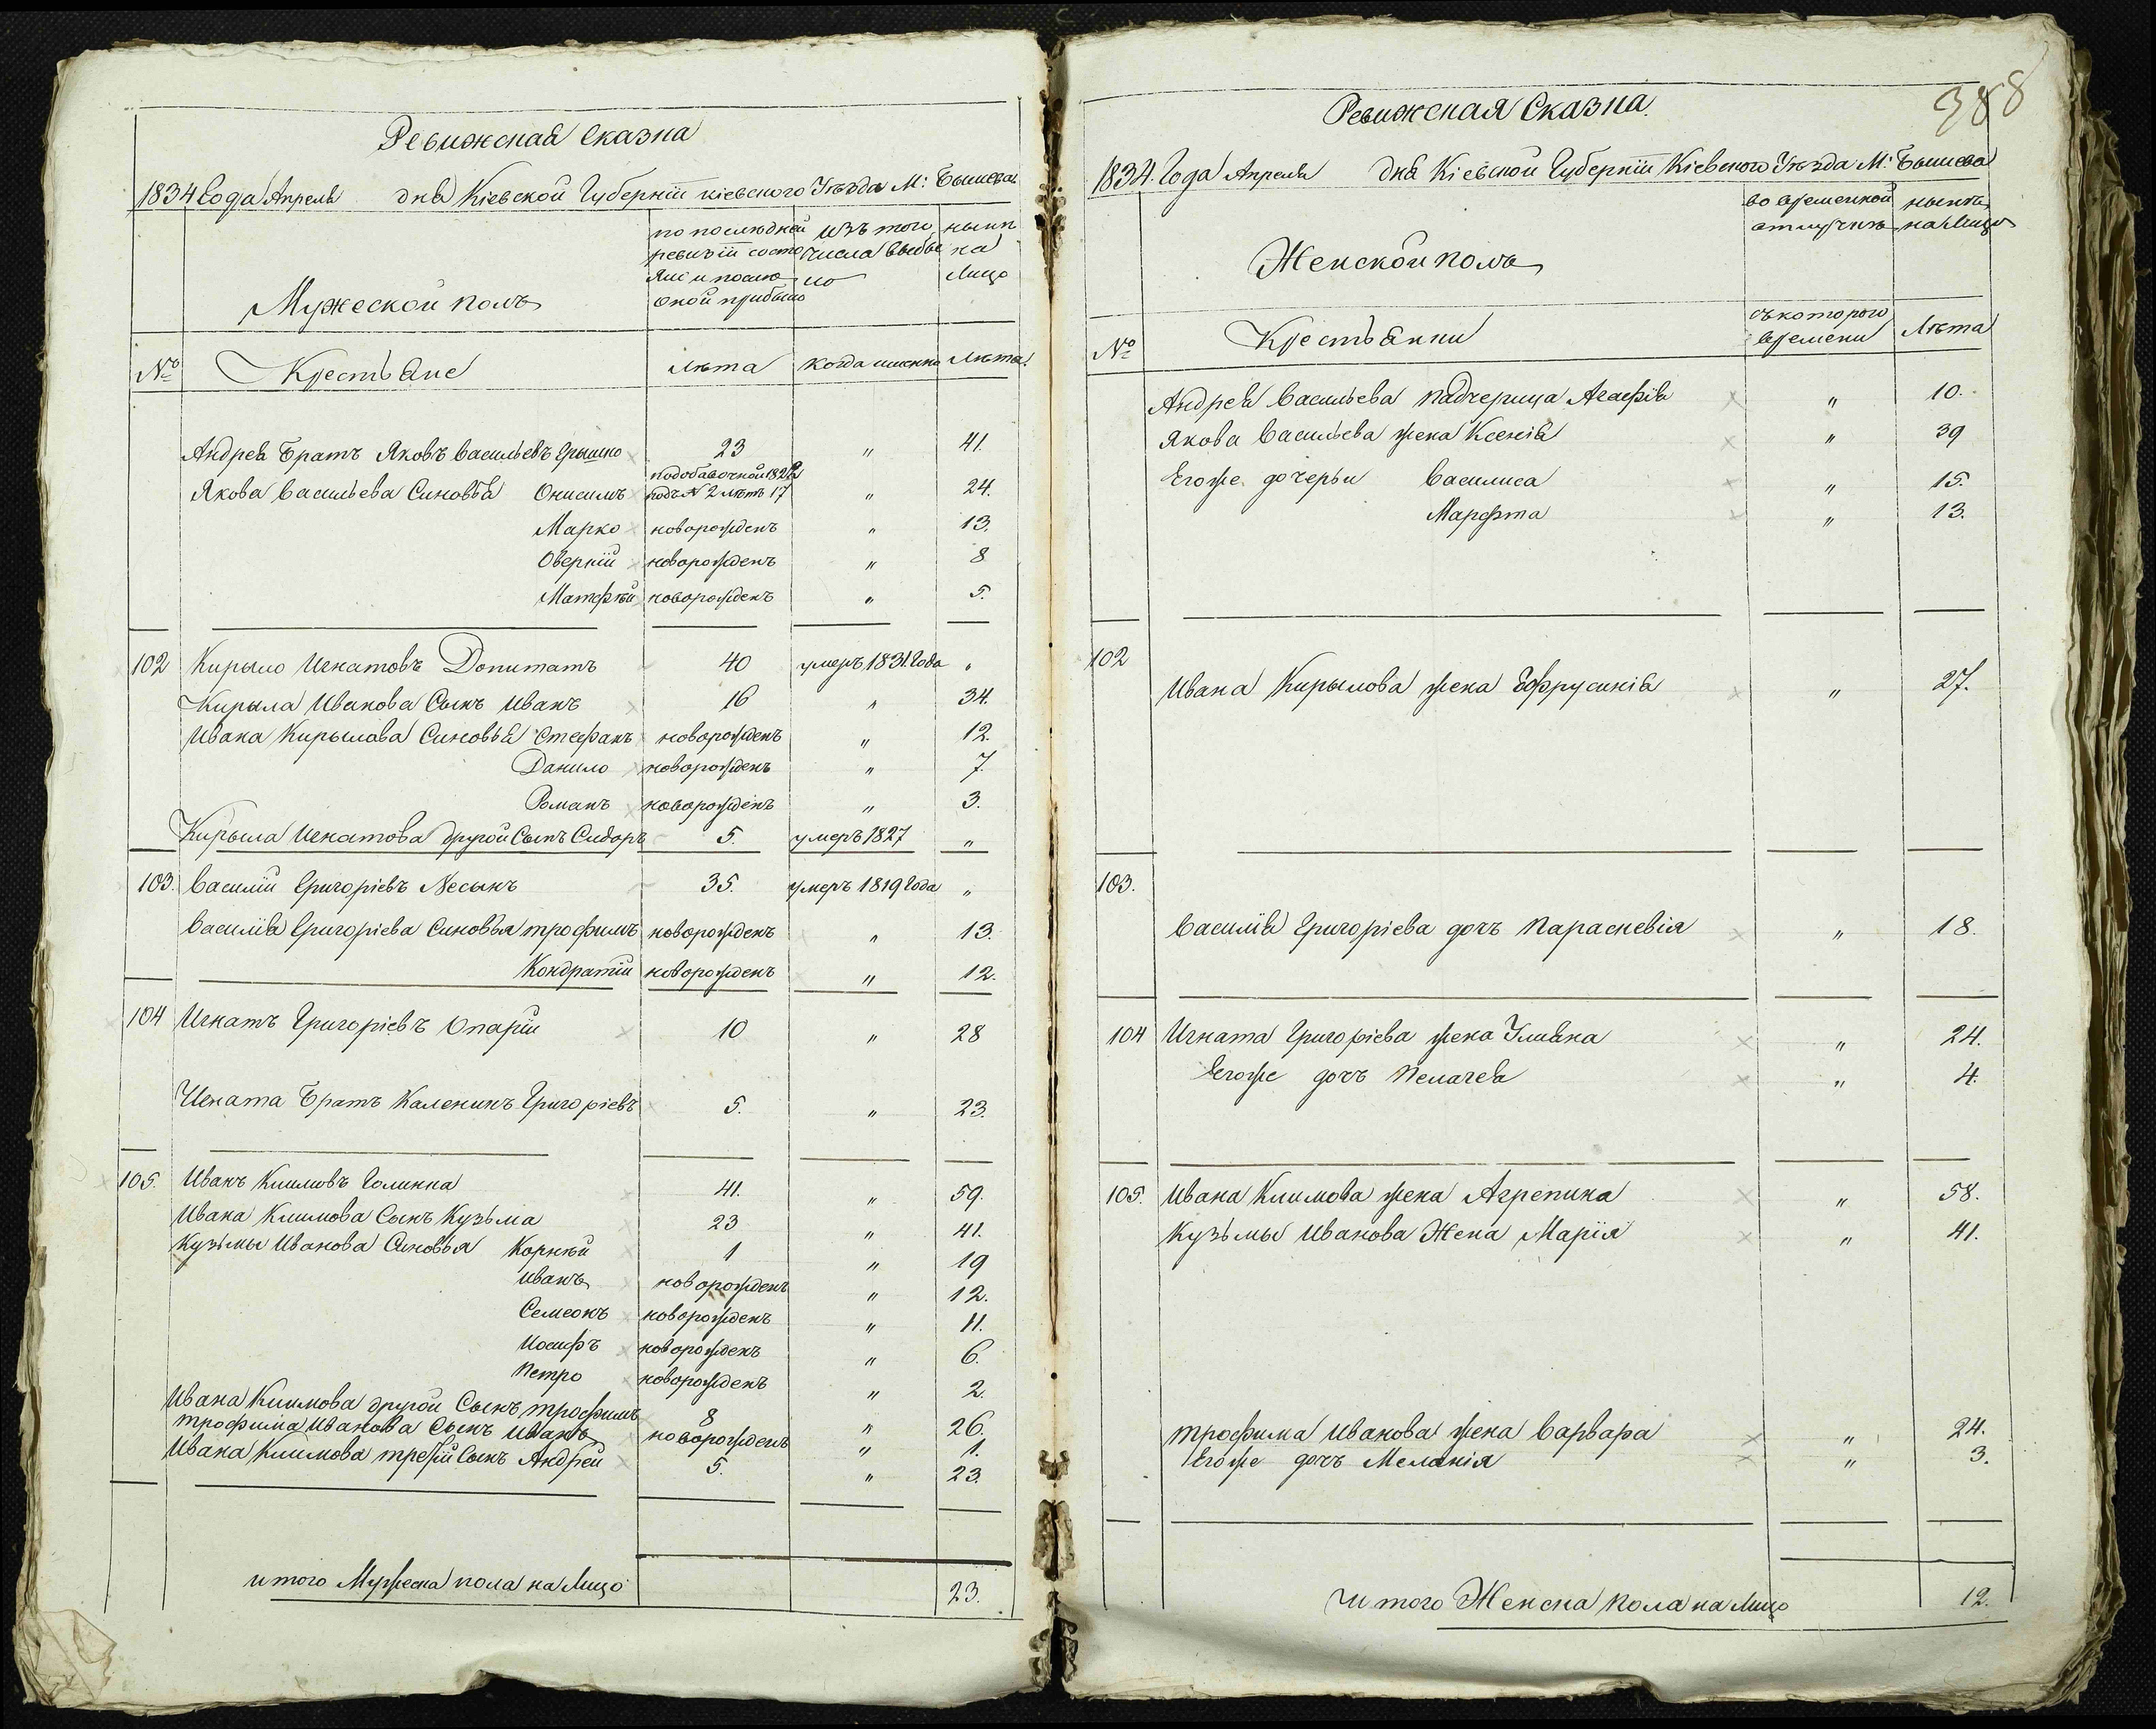 Ревижская Сказка
1834 Года Апреля дня Кіевской Губерніи Кіевского Уезда М: Бышева
по последней ревизіи состо яло и после оной прибыло
изъ того числа выбы ло
ныне на Лицо
Мужеской полъ
№ Крестьяне Лета Когда именно Лета
Андрея Братъ Яковъ Васильевъ Грышко 23 " 41.
Якова Васильева Синовья Онисимъ подобавочной 182 подъ N 2 летъ 17 " 24.
Марко новорожденъ " 13.
Оверкій новорожденъ " 8
Матфей новорожденъ " 5.
102 Кирыло Игнатовъ Допитатъ 40 умеръ 1831 Года "
Кирыла Иванова Сынъ Иванъ 16 " 34.
Ивана Кирылова Синовья Стефанъ новорожденъ " 12.
Данило новорожденъ " 7.
Романъ новорожденъ " 3.
Кирыла Игнатова другой Сынъ Сидоръ 5. умеръ 1827 "
103. Василій Григоріевъ Несынъ 35. умеръ 1819 Года "
Василія Григоріева Синовья трофимъ новорожденъ " 13.
Кондратій новорожденъ " 12.
104 Игнатъ Григоріевъ Опарій 10 " 28
Игната Братъ Каленикъ Григоріевъ 5. " 23.
105. Иванъ Климовъ Голинка 41. " 59.
Ивана Климова Сынъ Кузьма 23 " 41.
Кузьмы Иванова Синовья Корней 1 " 19
Иванъ новорожденъ " 12.
Семеонъ новорожденъ " 11.
Иосифъ новорожденъ " 6.
Петро новорожденъ " 2.
Ивана Климова другой Сынъ трофимъ 8 " 26.
трофима Иванова Сынъ Иванъ новорожденъ " 1.
Ивана Климова третій Сынъ Андрей 5. " 23.
итого Мужеска пола на Лицо 23.
388
Ревижская Сказка.
1834. Года Апреля дня Кіевской Губерніи Кіевского Уезда М: Бышева
Женской полъ
во временной отлучке
ныне на Лицо
№ Крестьянки съ которого времени Лета
Андрея Васильева падчерица Агафія " 10.
Якова Васильева жена Ксенія " 39
Егоже дочерьи Василиса " 15.
Марфта " 13.
102
Ивана Кирылова жена Ефрусинія " 27.
103.
Василія Григоріева дочъ Параскевія " 18.
104 Игната Григоріева жена Улияна " 24.
Егоже дочъ Пелагея " 4.
105. Ивана Климова жена Агрепина " 58.
Кузьмы Иванова Жена Марія " 41.
трофима Иванова жена Варвара " 24.
Егоже дочъ Меланія " 3.
и того Женска пола на Лицо 12.